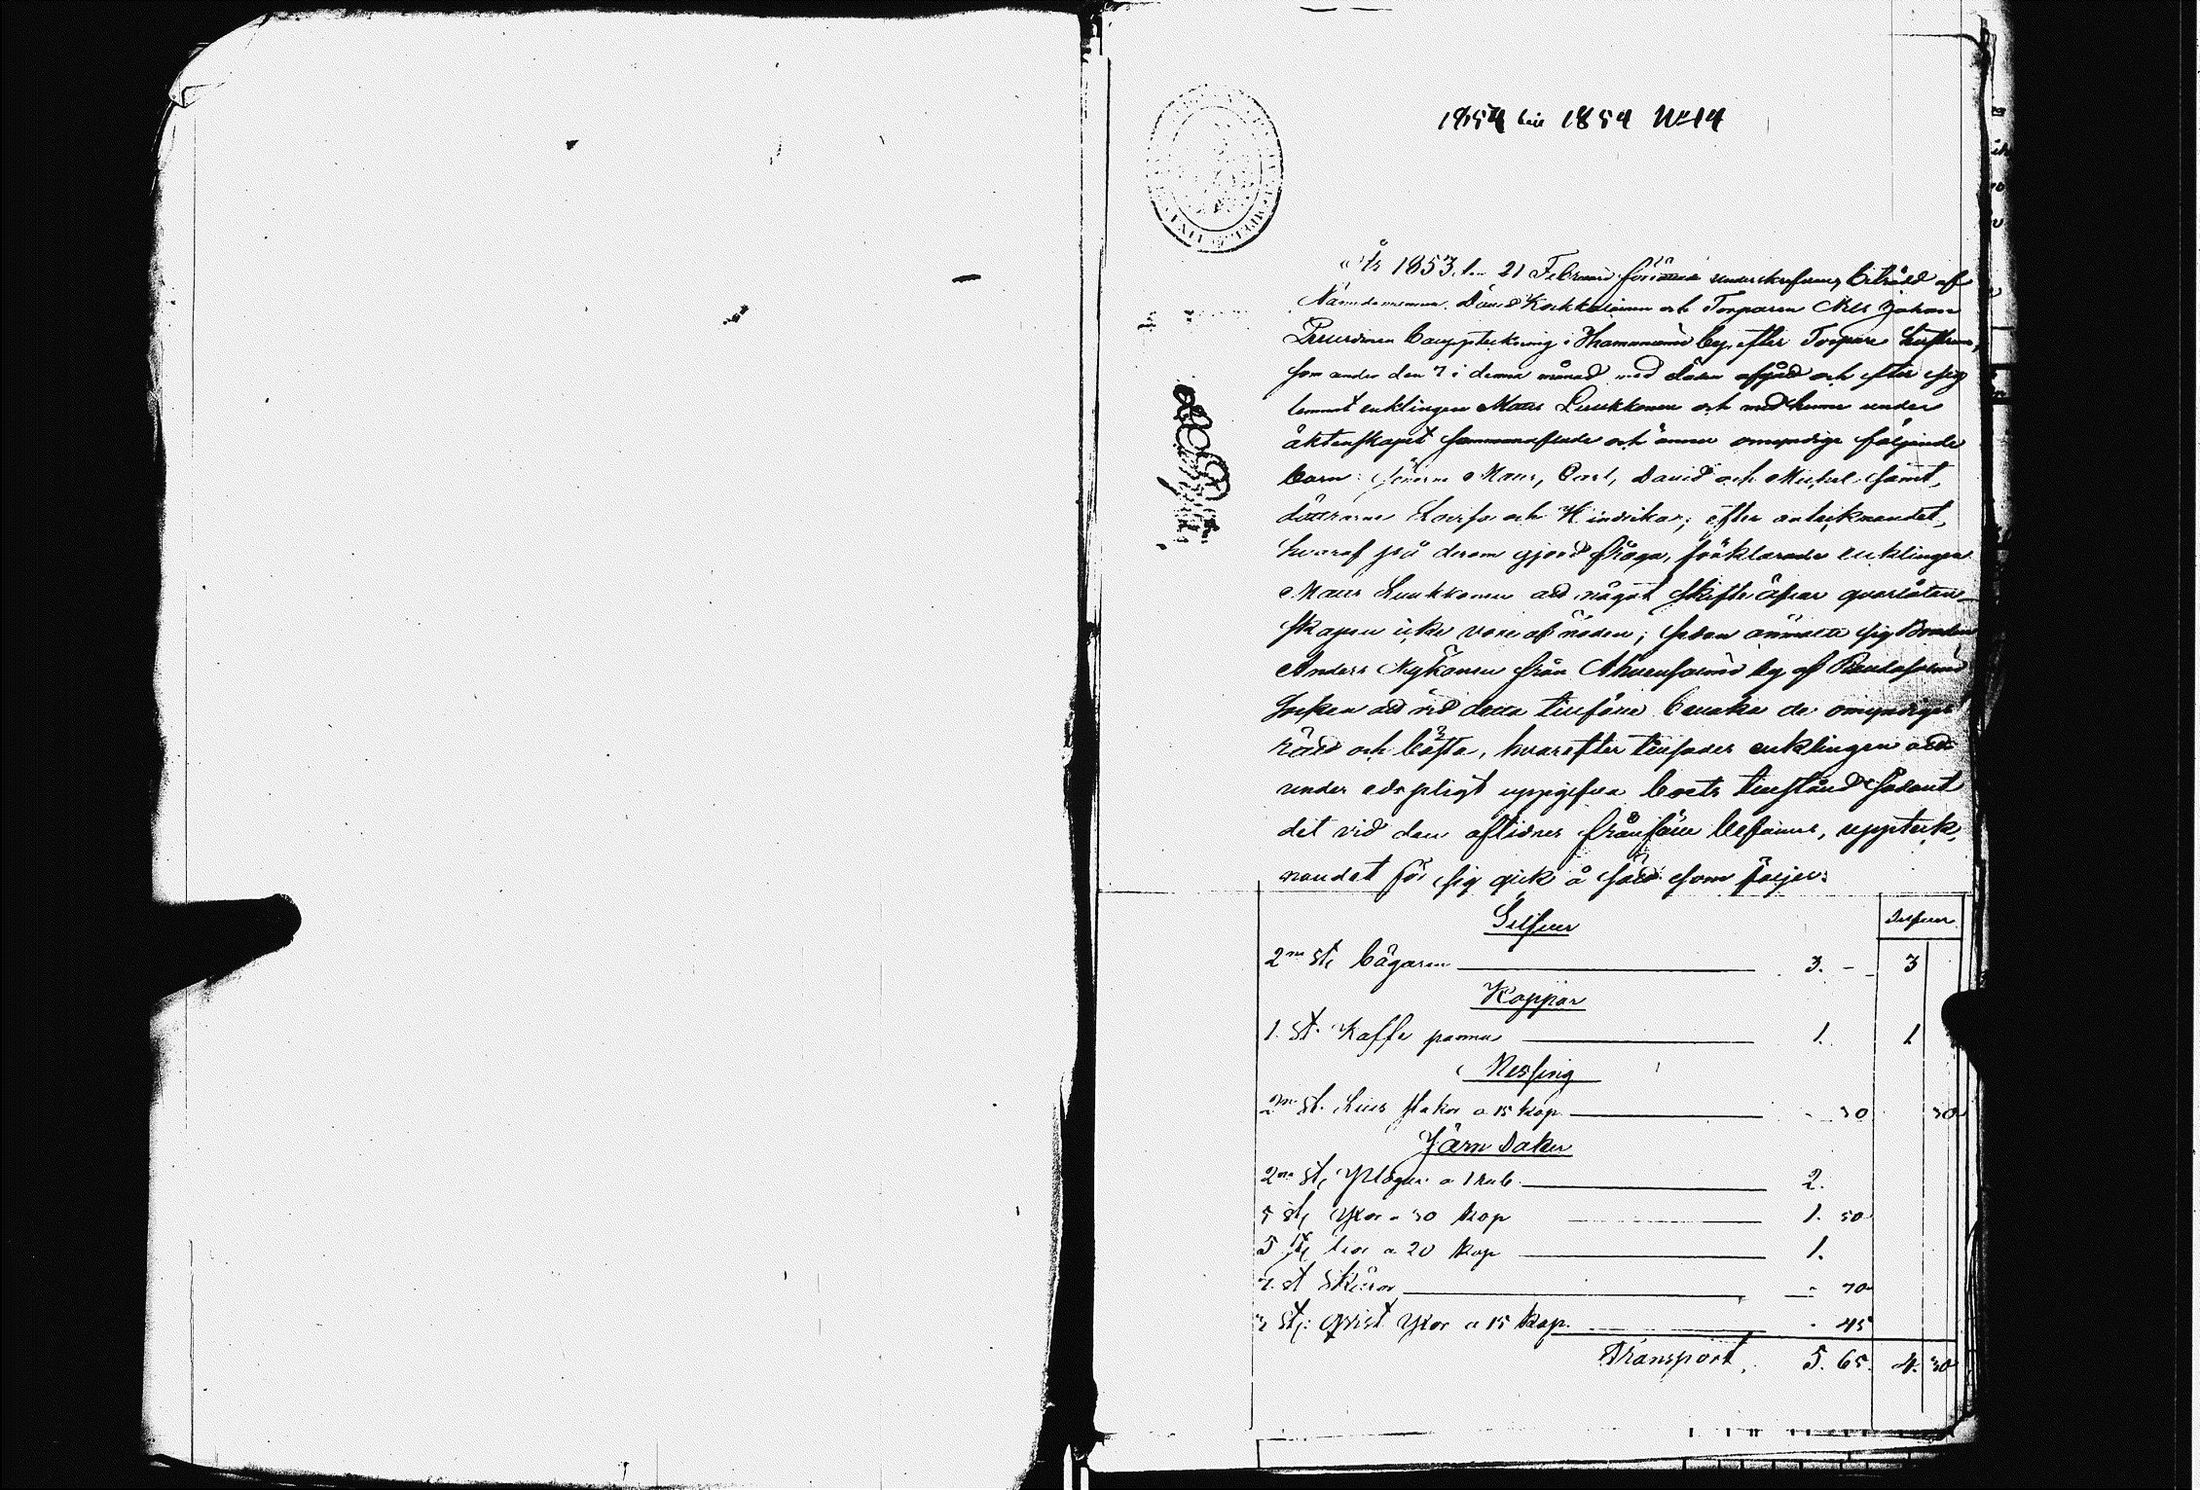 1854 1854 No 14
År 1853 den 21 Februari undertecknad, biträdd af
Nämndemannen David Kockkoinen och Torparen Nils Johan
bouppteckning i by efter Torpare hustrun,
som den 7 i denna månad med döden afgått och efter sig
lemnat enklingen Mats Luukkonen och med henne under
äktenskapet sammanaflade och ännu omyndige följande
barn: sönerne Mats, Carl, David och Michel samt
döttrarne Lovisa och Hindrika; efter antecknandet,
hvaraf på derom gjord fråga, förklarade enklingen
Mats Luukkonen att något skifte af qvarlåten-
skapen icke vore af nöden; sedan anmälte sig Bonden
Anders Nykänen från by af
Socken att vid detta tillfälle bevaka de omyndiges
rätt och bästa, hvarefter tillsades enklingen att
under edspligt uppgifva boets tillstånd sådant
det vid den aflidnes frånfälle befanns, uppteck-
nandet för sig gick å sätt som följer:
Silfver
Silfver
2ne st. bägaren 3. - 3
Koppar
1. st. Kaffe panna 1. 1
Messing
2ne st. Ljus stakar a 15 kop. - 30 30
Järn Saker
2ne st. Plogar a 1 rub. 2.
5 st. Yxor a 30 kop 1. 50
5 st. liar a 20 kop 1.
7. st Skäror - 70
3 st: qvist Yxor a 15 kop. - 45
Transport, 5. 65. 4. 30